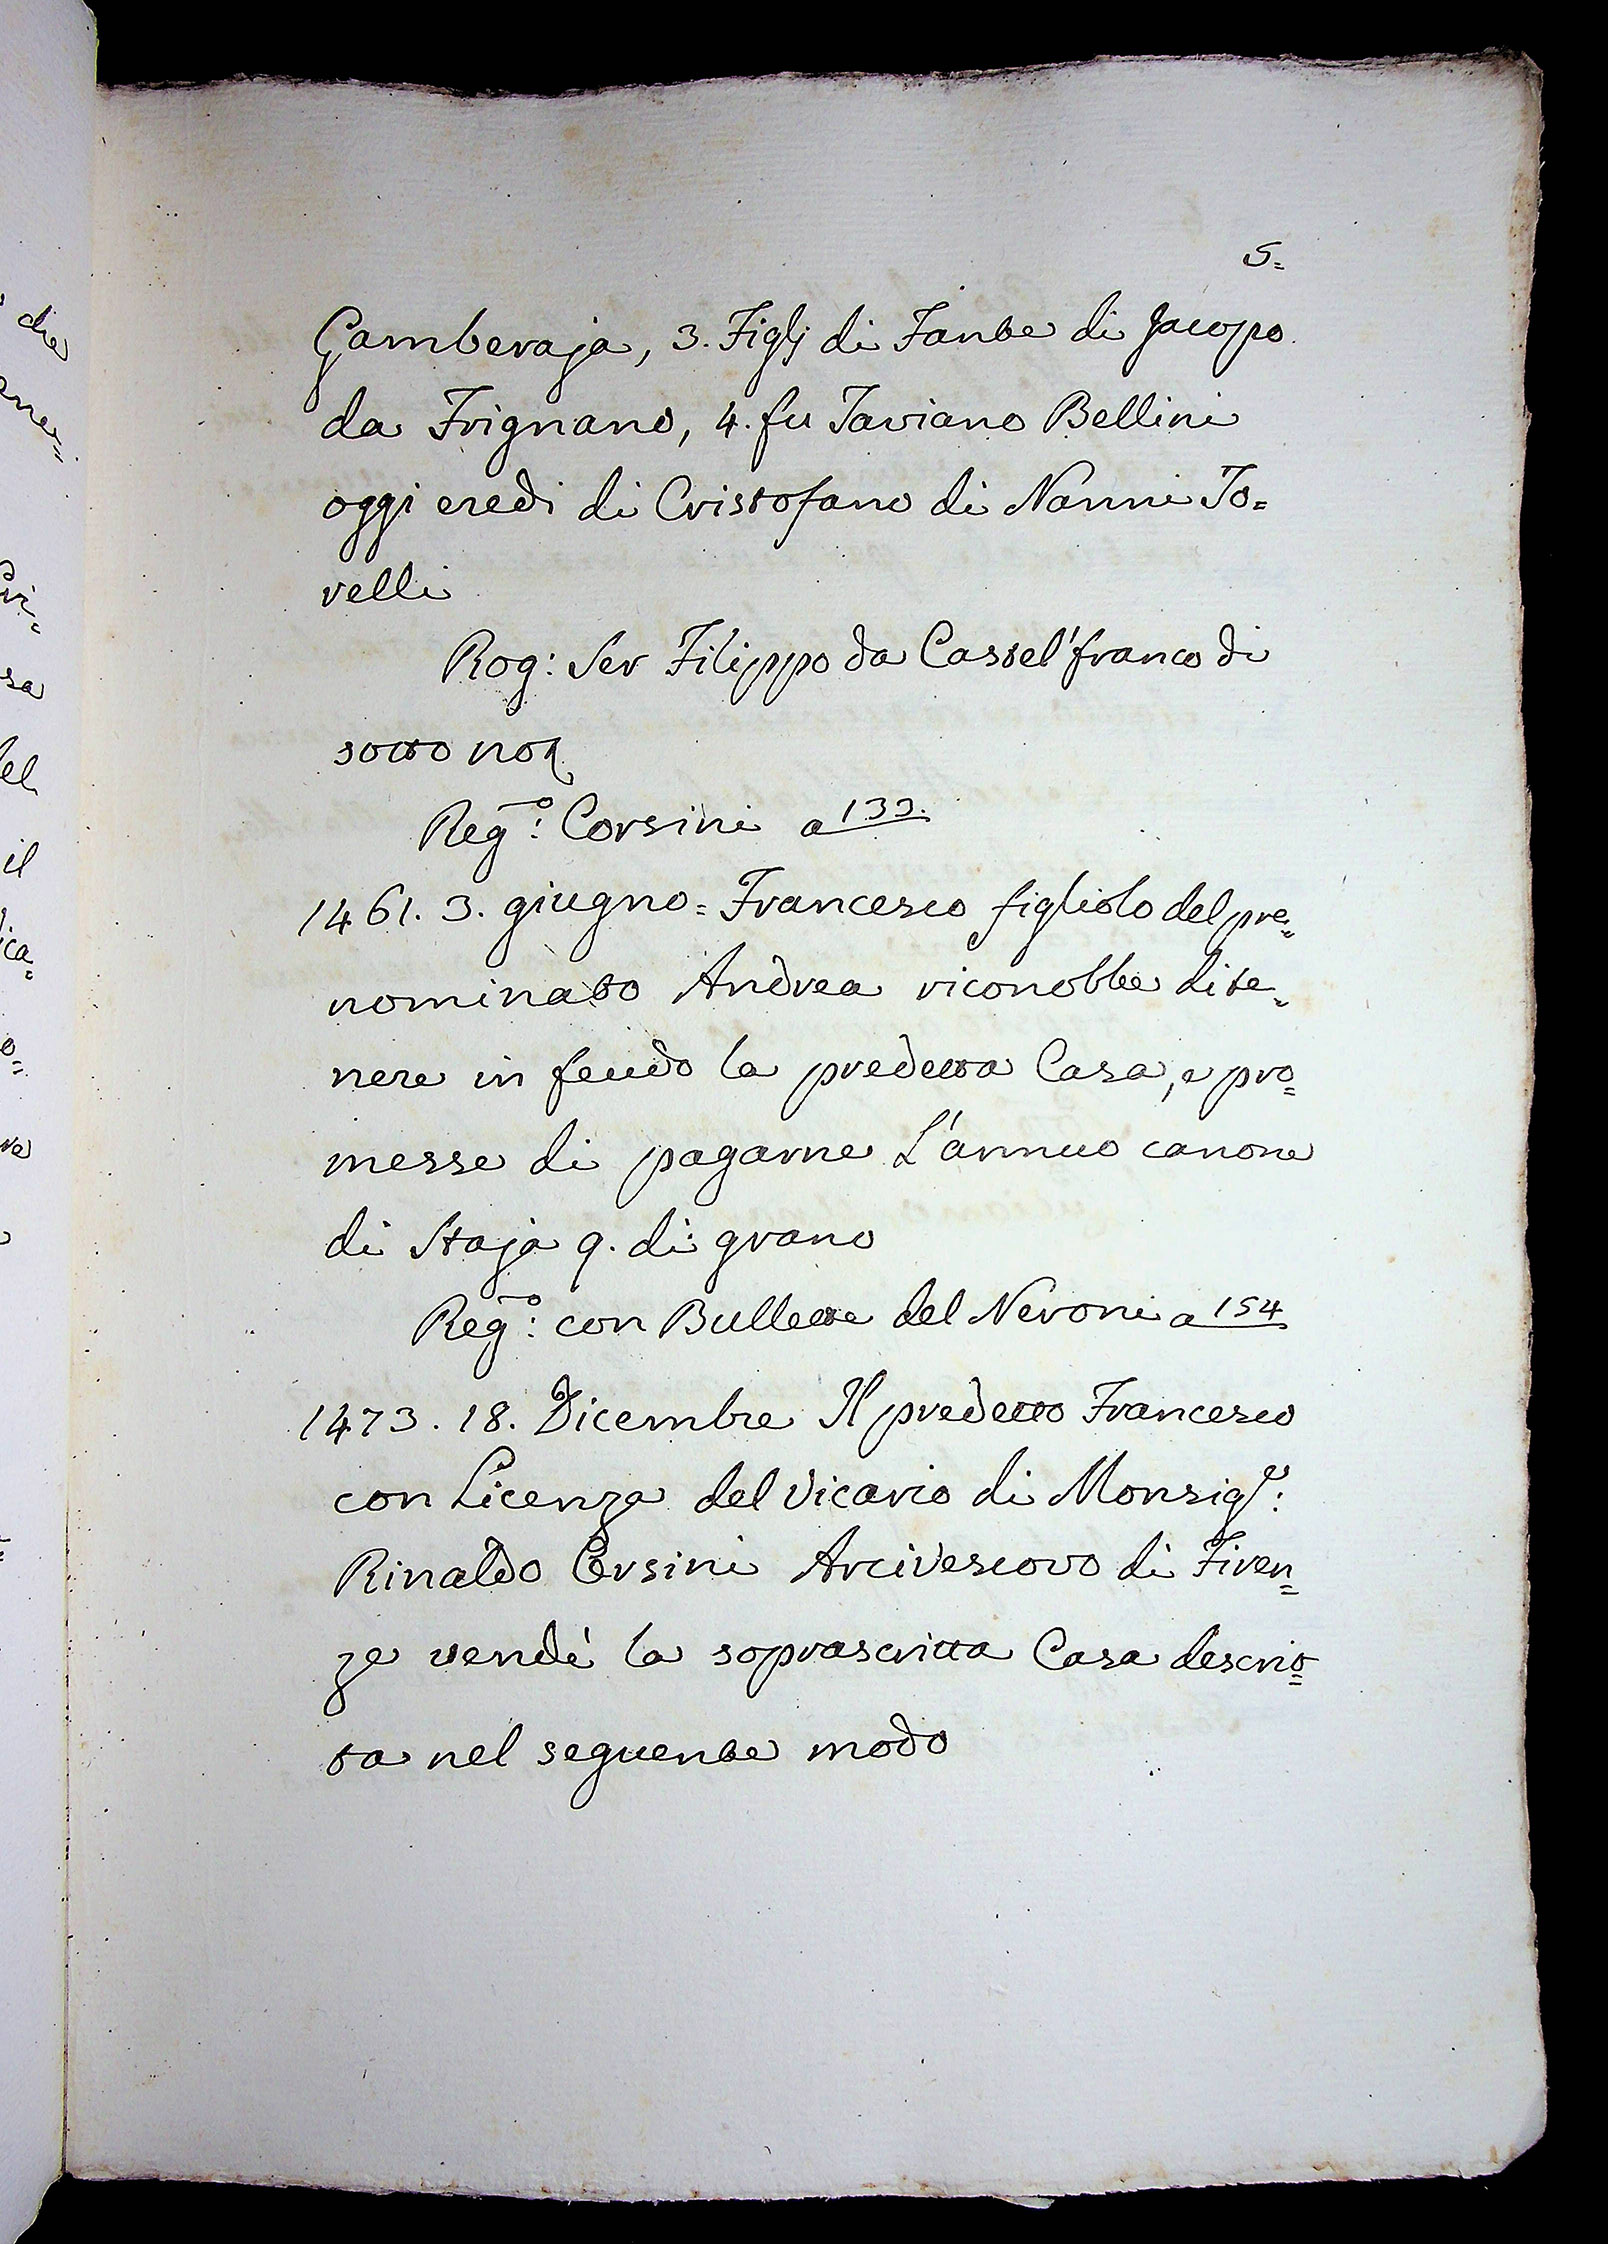 5=
Gamberaja, 3. Figlj di Fante di Jacopo
da Frignano, 4. fu Taviano Bellini
oggi eredi di Cristofano di Nanni To=
relli
Rog: Ser Filippo da Castel'franco di
sotto not
Reg:o Corsini a 133.
1461. 3. giugno = Francesco figliolo del pre=
nominato Andrea riconobbe di te=
nere in feudo la predetta Casa, e pro=
messe di pagarne L'annuo canone
di Staja 9. di grano
Reg:o con Bullette del Neroni a 154
1473. 18. Dicembre Il predetto Francesco
con Licenza del Vicario di Monsig.e:
Rinaldo Orsini Arcivescovo di Firen=
ze vendè la soprascritta Casa descrit=
ta nel seguente modo